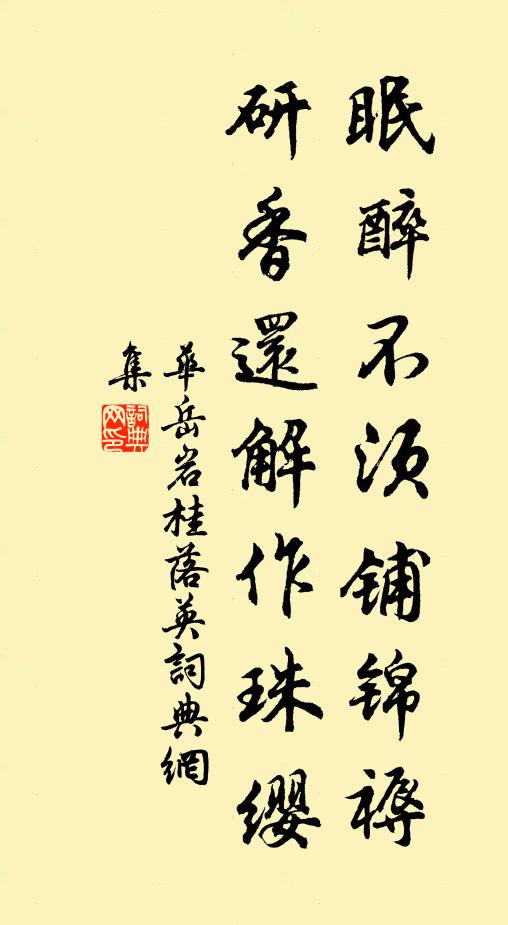 眠醉不须铺锦褥
研香還解作珠缨
華岳岩桂落英詞典網
集
詞典网印